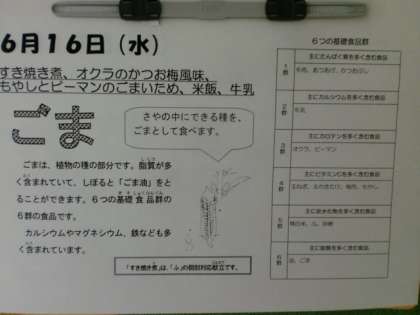 6月16日（水）
すき焼き煮、オクラのかつお梅風味、
もやしとピーマンのごまいため、米飯、牛乳
ごま
さやの中にできる種を、
ごまとして食べます。
ごまは、植物の種の部分です。脂質が多
く含まれていて、しぼると「ごま油」をと
ることができます。６つの基礎食品群の
６群の食品です。
カルシウムやマグネシウム、鉄なども多
く含まれています。
「すき焼き煮」は、「ふ」の個別対応献立です。
６つの基礎食品群
1群
主にたんぱく質を多く含む食品
牛肉、あつあげ、かつおぶし
2群
主にカルシウムを多く含む食品
牛乳
3群
主にカロテンを多く含む食品
オクラ、ピーマン
4群
主にビタミンCを多く含む食品
5群
主に炭水化物を多く含む食品
精白米、ふ、砂糖
6群
主に脂質を多く含む食品
油、ごま